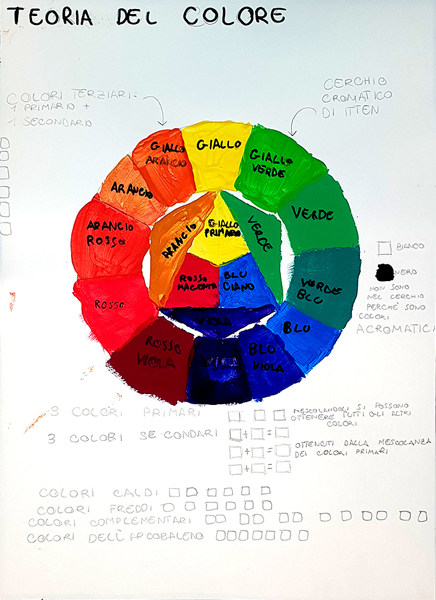 TEORIA DEL COLORE
COLORI TERZIARI=
1 PRIMARIO +
1 SECONDARIO
CERCHIO
CROMATICO
DI ITTEN
GIALLO
GIALLO
ARANCIO
GIALLO
VERDE
ARANCIO
VERDE
ARANCIO
ROSSO
GIALLO
PRIMARIO
ARANCIO
VERDE
ROSSO
MAGENTA
BLU
CIANO
VIOLA
ROSSO
VERDE
BLU
BLU
ROSSO
VIOLA
VIOLA
BLU
VIOLA
BIANCO
NERO
NON SONO
NEL CERCHIO
PERCHÉ SONO
COLORI
ACROMATICI
3 COLORI PRIMARI
MESCOLANDOLI SI POSSONO
OTTENERE TUTTI GLI ALTRI
COLORI
3 COLORI SECONDARI + =
OTTENUTI DALLA MESCOLANZA
DEI COLORI PRIMARI
+ =
+ =
COLORI CALDI
COLORI FREDDI
COLORI COMPLEMENTARI
COLORI DELL'ARCOBALENO